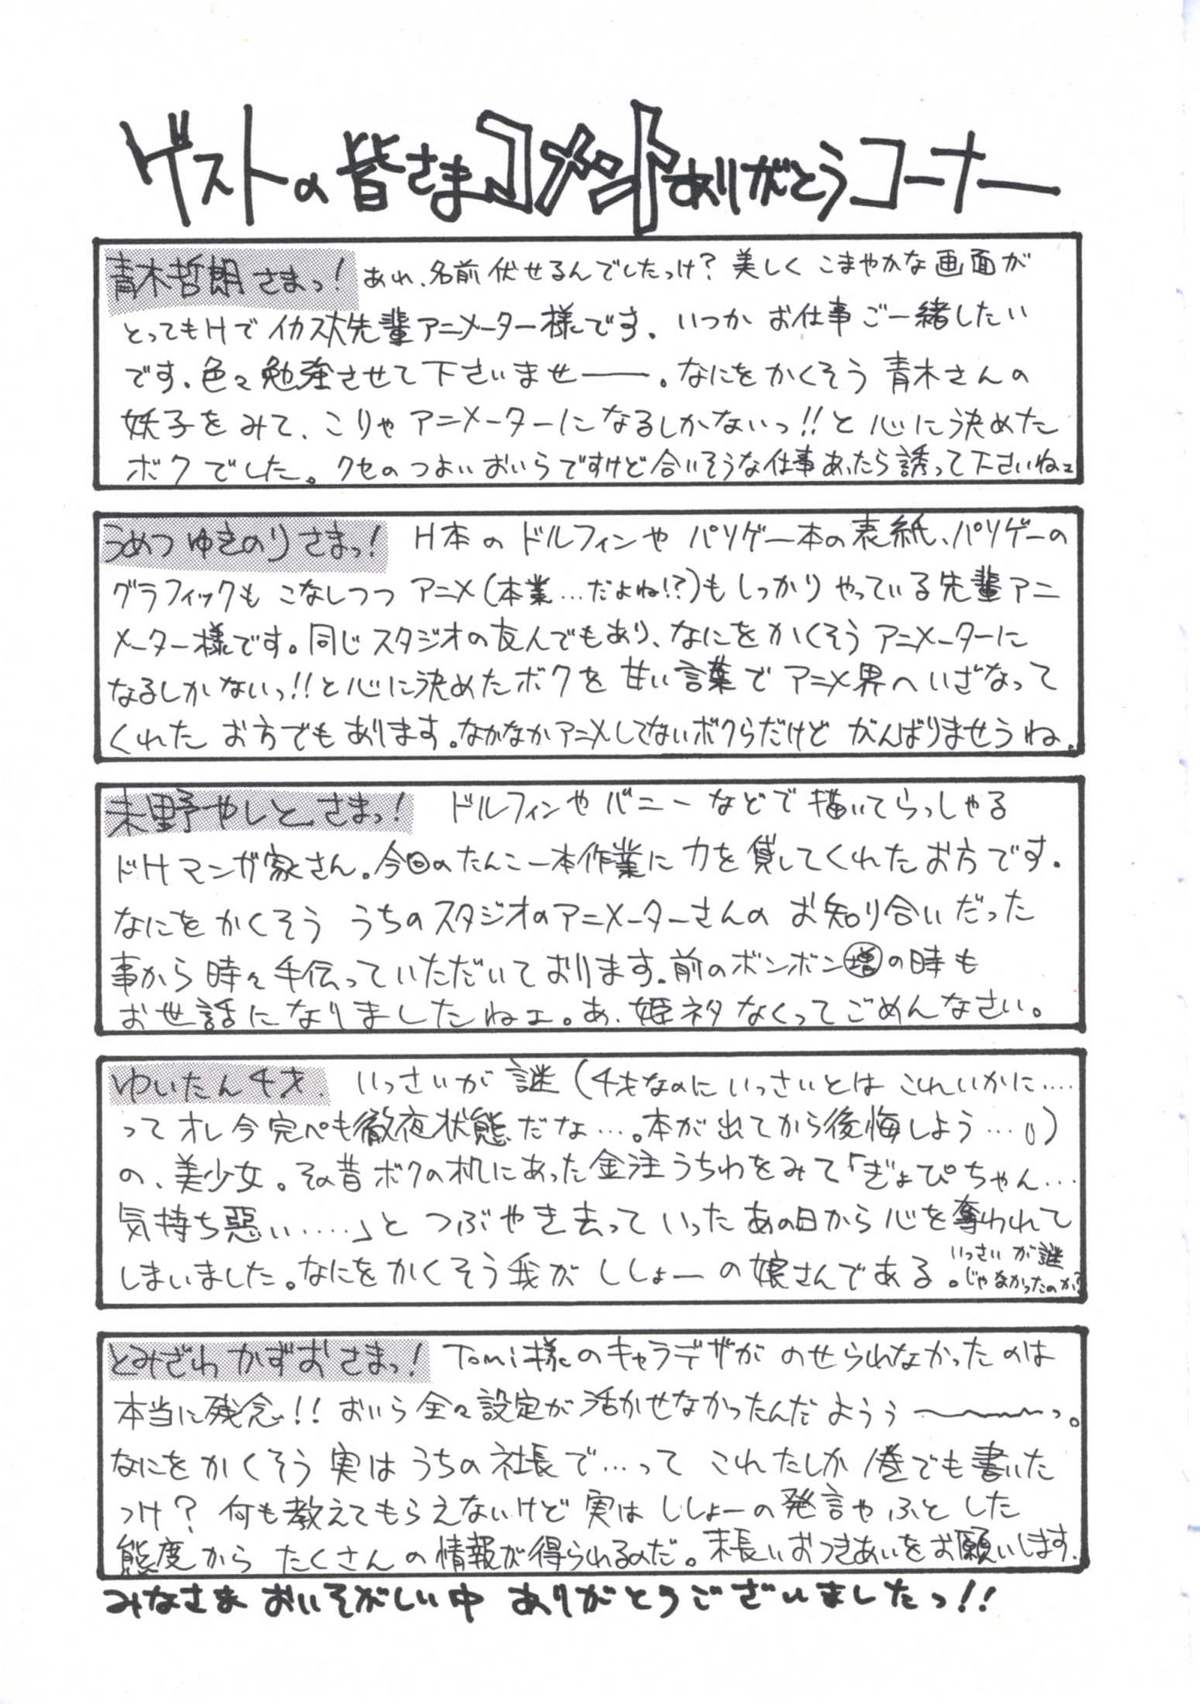 ゲストの皆さまコメントありがとうコーナー
青木哲朗さまっ! あれ、名前伏せるんでしたっけ? 美しくこまやかな画面が
とってもHでイカス大先輩アニメーター様です。いつかお仕事ご一緒したい
です。色々勉強させて下さいませ――。なにをかくそう青木さんの
妖子をみて、こりゃアニメーターになるしかないっ!!と心に決めた
ボクでした。クセのつよいおいらですけど合いそうな仕事あったら誘って下さいねェ
うめつゆきのりさまっ! H本のドルフィンやパソゲー本の表紙、パソゲーの
グラフィックもこなしつつアニメ(本業…だよね!?)もしっかりやっている先輩アニ
メーター様です。同じスタジオの友人でもあり、なにをかくそうアニメーターに
なるしかないっ!!と心に決めたボクを甘い言葉でアニメ界へいざなって
くれたお方でもあります。なかなかアニメしてないボクらだけどがんばりませうね。
未野やしとさまっ! ドルフィンやバニーなどで描いてらっしゃる
ドHマンガ家さん。今回のたんこー本作業に力を貸してくれたお方です。
なにをかくそううちのスタジオのアニメーターさんのお知り合いだった
事から時々手伝っていただいております。前のボンボン増の時も
お世話になりましたねェ。あ、姫ネタなくってごめんなさい。
ゆいたん4才。いっさいが謎(4才なのにいっさいとはこれいかに….
ってオレ今完ペキ徹夜状態だな…。本が出てから後悔しよう…)
の、美少女。その昔ボクの机にあった金注うちわをみて「ぎょぴちゃん…
気持ち悪い……」とつぶやき去っていったあの日から心を奪われて
しまいました。なにをかくそう我がししょーの娘さんである。
いっさいが謎
じゃなかったのか?
とみざわかずおさまっ! Tomi様のキャラデザがのせられなかったのは
本当に残念!! おいら全々設定が活かせなかったんだようぅ～～～っ。
なにをかくそう実はうちの社長で…ってこれたしか1巻でも書いた
っけ? 何も教えてもらえないけど実はししょーの発言やふとした
態度からたくさんの情報が得られるのだ。末長いおつきあいをお願いします。
みなさまおいそがしい中ありがとうございましたっ!!